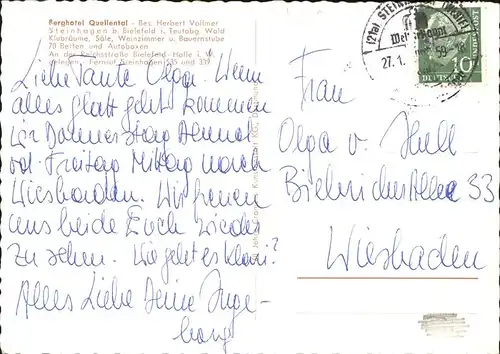 Berghotel Quellental - Bes. Herbert Vollmer
Steinhagen b. Bielefeld i. Teutobg. Wald
Klubräume, Säle, Weinzimmer u. Bauernstube
70 Betten und Autoboxen
An der Reichsstraße Bielefeld-Halle i. W.
gelegen. Fernruf Steinhagen 535 und 339
(21a) STEIN
27.1.
59
DEUTSCHE
POST
10
Liebe Tante Olga. Wenn
alles glatt geht kommen
wir Donnerstag Abend
od. Freitag Mittag nach
Wiesbaden. Wir freuen
uns beide Euch wieder
zu sehen. Wie geht es
Alles Liebe Deine Inge-
borg
Frau
Olga v. Hell
33
Wiesbaden